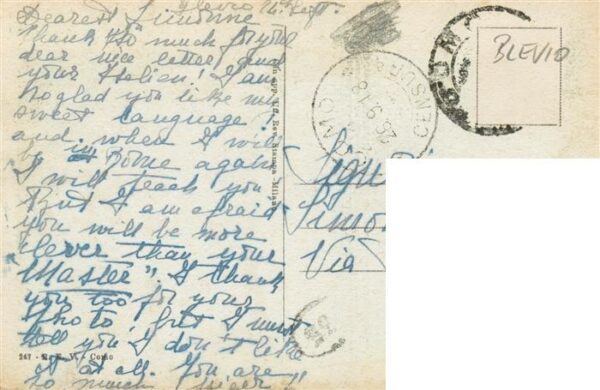 Blevio 16 Sept.
Dearest Simonne
Thank so much for your
dear nice letter and
your Italien! I am
so glad you like my
sweet language!
and when I will
be in Rome again
I will teach you
But I am afraid
you will be more
clever than your
Master". I thank
you too for your
Photo but I must
tell you I don't like
it at all. You are
so much nicer!!
CENSURA
28.9.18
COMO
BLEVIO
Simon
Via
Rev. Stampa Milano
247 - Como